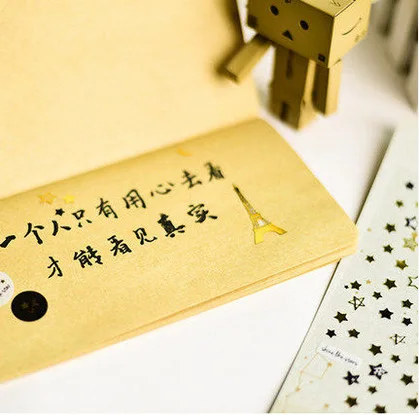 一个人只有用心去看
才能看见真实
shine like stars